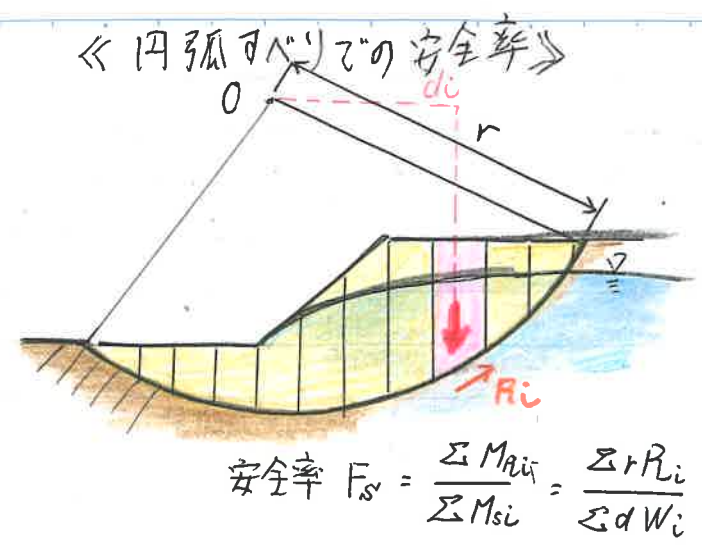 ≪円弧すべりでの安全率≫
O
di
r
▽
Ri
安全率 Fs = ΣMRi / ΣMsi = ΣrRi / Σd Wi